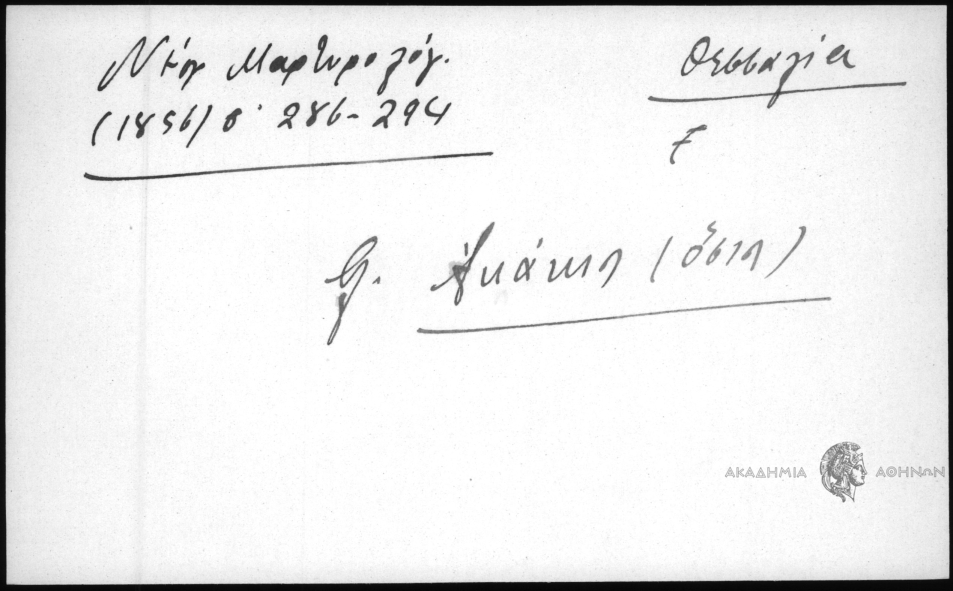 Νέον Μαρτυρολόγ.
(1856) σ. 286-294
Θεσσαλία
Ἀκάκιος (ὅσιος)
ΑΚΑΔΗΜΙΑ ΑΘΗΝΩΝ